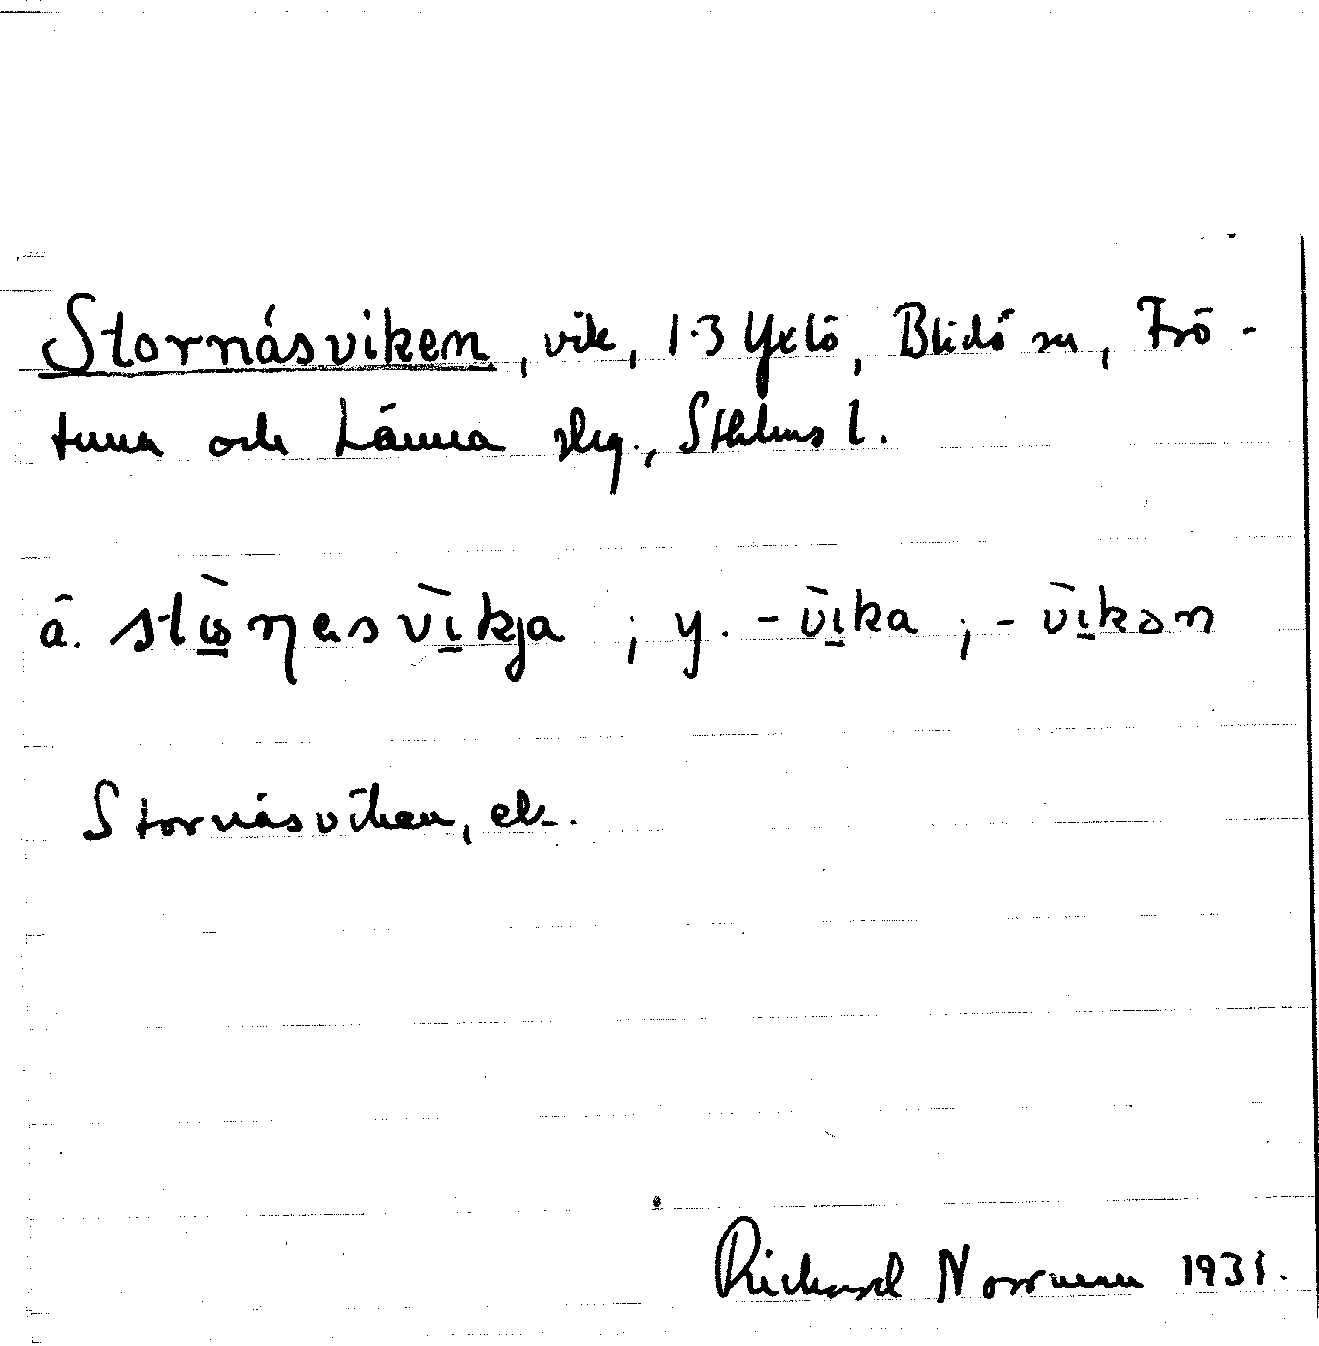 Stornäsviken, vik, 1·3 Yxlö, Blidö sn, Frö-
tuna och Länna slg., Sthlms l.
ä. stὼɳesvìkja ; y. -vìka ; -vìkən
Stornäsviken, ek.
Richard Norrman 1931.